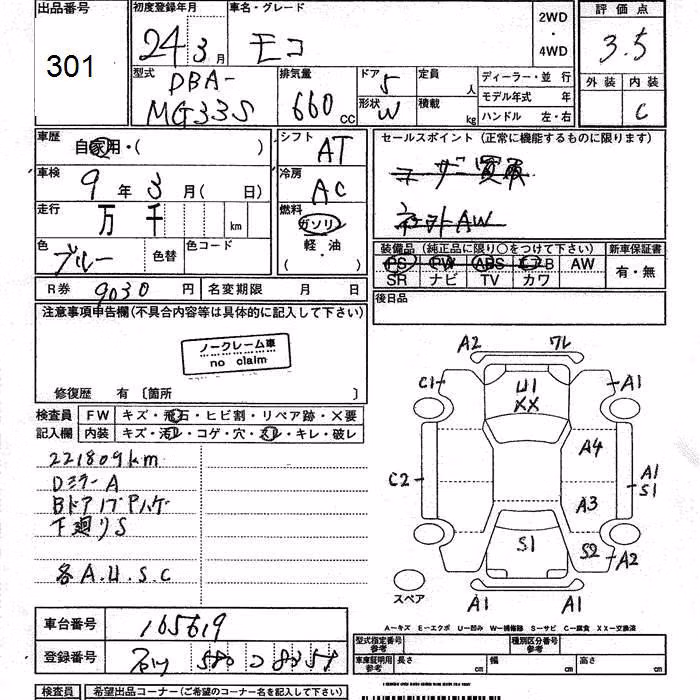 出品番号
301
初度登録年月
24 3月
車名・グレード
モコ
2WD
・
4WD
評価点
3.5
外装 内装
C
型式
DBA-
MG33S
排気量
660 CC
ドア 5
形状 W
定員 人
積載 kg
ディーラー・並行
モデル年式 年
ハンドル 左・右
車歴
自家用・( )
車検
9年3月( 日)
走行
万 千 km
色
ブルー
色替
色コード
シフト
AT
冷房
AC
燃料
ガソリン
軽・油
( ・ )
セールスポイント (正常に機能するものに限ります)
ユーザー買取
装備品 (純正品に限り○をつけて下さい)
新車保証書
PS PW ABS エアB AW
SR ナビ TV カワ
有・無
R券 9030 円
名変期限 月 日
後日品
注意事項申告欄(不具合内容等は具体的に記入して下さい)
ノークレーム車
no claim
修復歴 有 〔箇所 〕
検査員
記入欄
FW キズ・飛石・ヒビ割・リペア跡・✕要
内装 キズ・汚レ・コゲ・穴・スレ・キレ・破レ
221809km
DミラーA
下廻りS
各A.U.S.C
A2 ワレ
C1 U1 A1
XX
A4
C2 A1
S1
A3
S1 S2 A2
スペア
A1 A1
A−キズ E−エクボ U−凹み W−補修跡 S−サビ C−腐食 XX−交換済
車台番号
165619
登録番号
580 コ 8358
型式指定番号
参考
種別区分番号
参考
車庫証明用
参考
長さ cm 幅 cm 高さ cm
検査員 希望出品コーナー(ご希望のコーナー名を記入下さい)